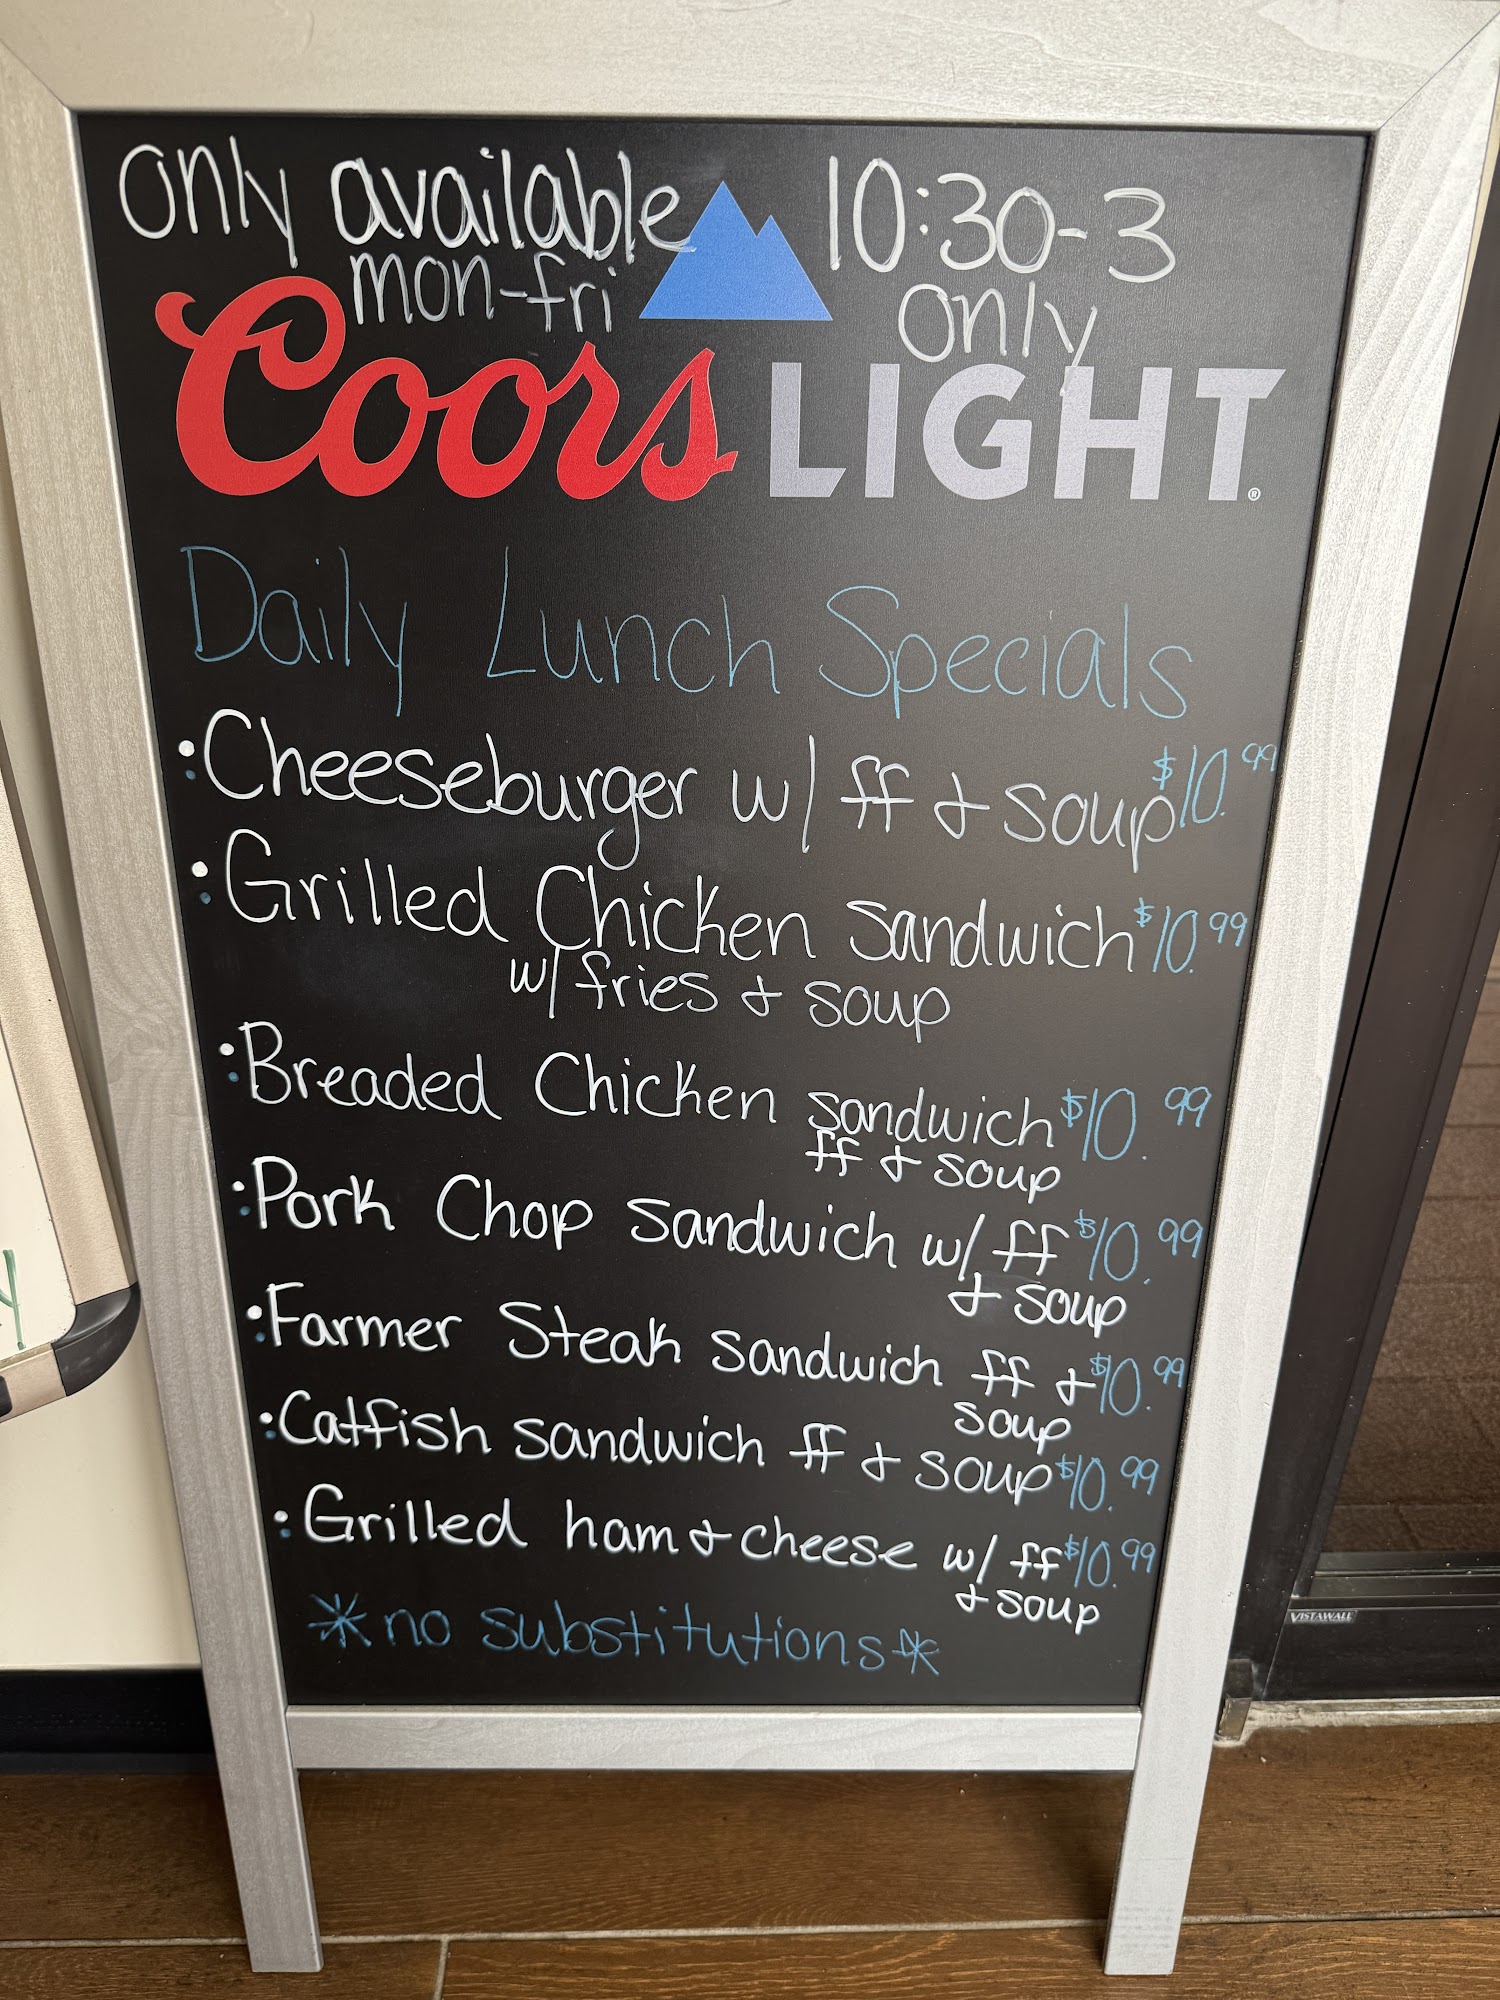 only available 10:30-3
mon-fri only
Coors LIGHT®
Daily Lunch Specials
• Cheeseburger w/ ff & soup $10.99
• Grilled Chicken Sandwich $10.99
w/ fries & soup
• Breaded Chicken sandwich $10.99
ff & soup
• Pork Chop Sandwich w/ ff $10.99
& soup
• Farmer Steak Sandwich ff & $10.99
soup
• Catfish sandwich ff & soup $10.99
• Grilled ham & cheese w/ ff $10.99
& soup
*no substitutions*
VISTAWALL